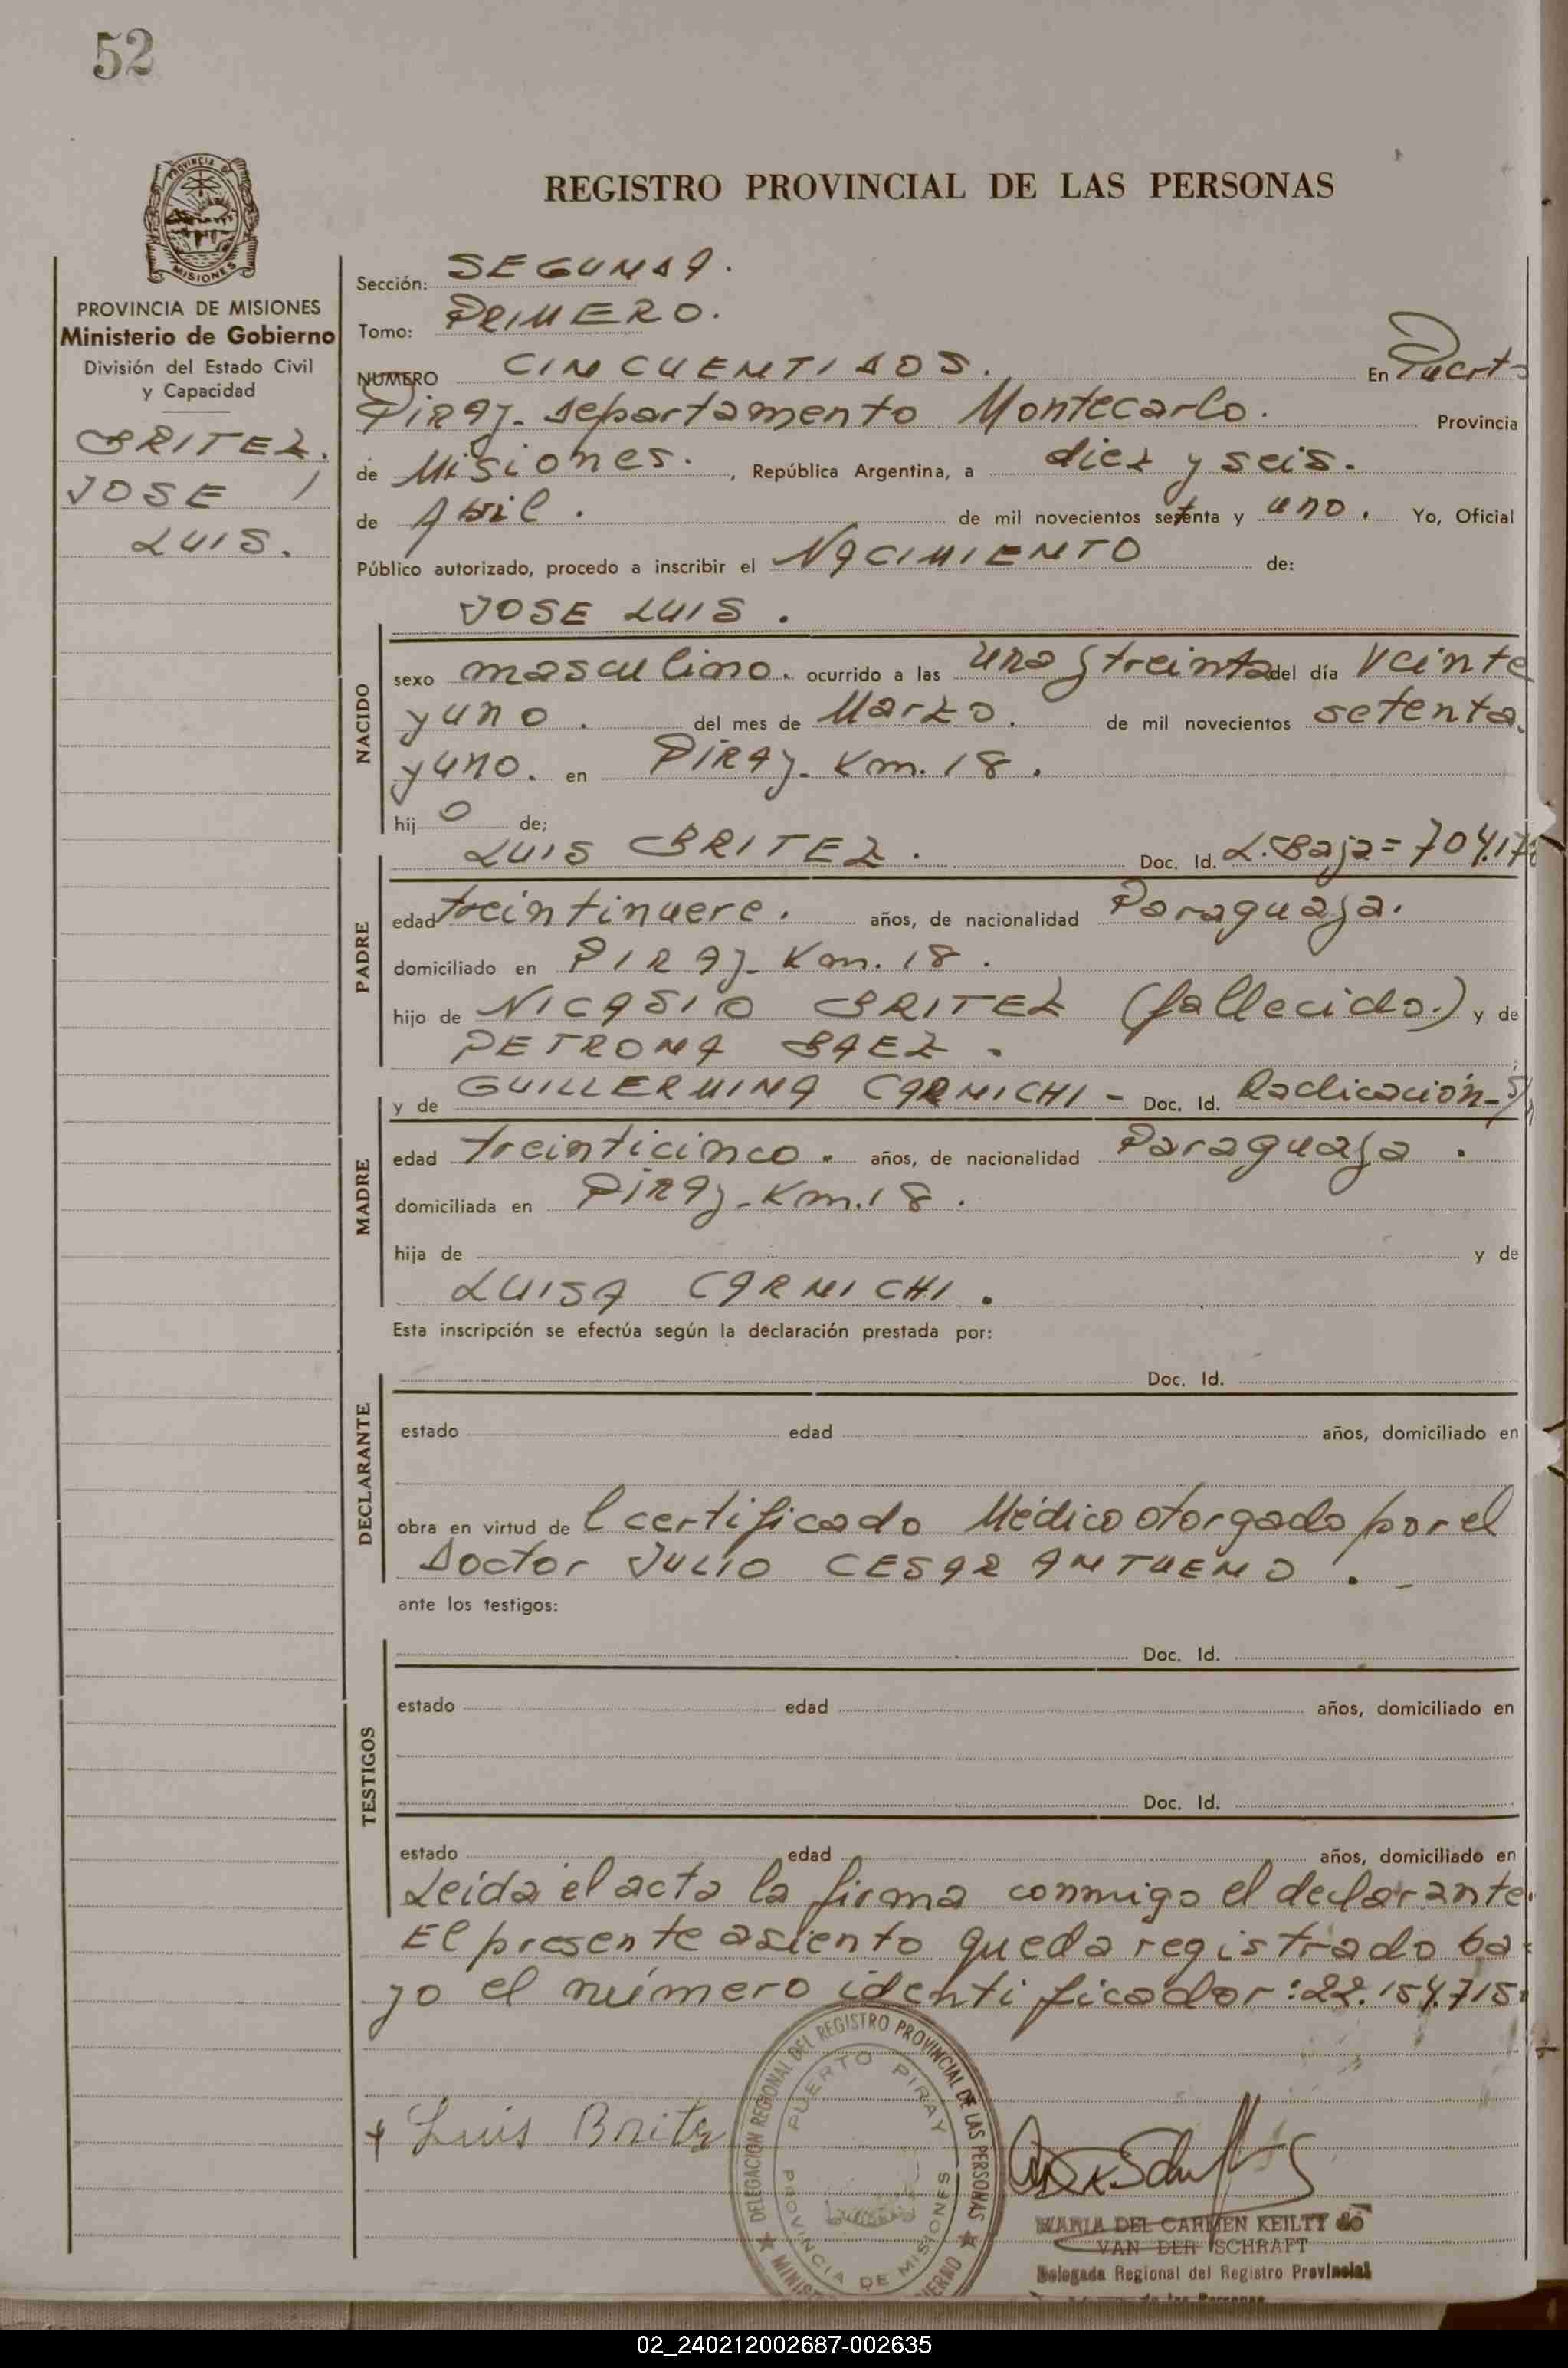 52
PROVINCIA DE
MISIONES
REGISTRO PROVINCIAL DE LAS PERSONAS
PROVINCIA DE MISIONES
Ministerio de Gobierno
División del Estado Civil
y Capacidad
BRITEZ.
JOSE
LUIS.
Sección: SEGUNDA.
Tomo: PRIMERO.
NUMERO CINCUENTIDOS. En Puerto
Piray. departamento Montecarlo. Provincia
de Misiones. , República Argentina, a diez y seis.
de Abril. de mil novecientos setenta y uno. Yo, Oficial
Público autorizado, procedo a inscribir el NACIMIENTO de:
JOSE LUIS.
NACIDO
sexo masculino. ocurrido a las una y treinta del día veinte
y uno. del mes de Marzo. de mil novecientos setenta
y uno. en PIRAY- Km. 18.
hij o de;
LUIS BRITEZ. Doc. Id. L. Baja=
PADRE
edad treintinueve. años, de nacionalidad Paraguaya.
domiciliado en PIRAY- Km. 18.
hijo de NICASIO BRITEZ (fallecido.) y de
PETRONA BAEZ.
y de GUILLERMINA CARNICHI - Doc. Id. Radicación-
MADRE
edad treinticinco. años, de nacionalidad Paraguaya.
domiciliada en PIRAY- Km. 18.
hija de y de
LUISA CARNICHI.
Esta inscripción se efectúa según la declaración prestada por:
Doc. Id.
DECLARANTE
estado edad años, domiciliado en
obra en virtud de l certificado Médico otorgado por el
Doctor JULIO CESAR ANTUENO.
ante los testigos:
Doc. Id.
estado edad años, domiciliado en
TESTIGOS
Doc. Id.
estado edad años, domiciliado en
Leída el acta la firma conmigo el declarante.
El presente asiento queda registrado ba-
jo el número identificador: 22.154.715.
DELEGACION REGIONAL DEL REGISTRO PROVINCIAL DE LAS PERSONAS
PUERTO PIRAY
PROVINCIA DE MISIONES
Luis Britez
MARIA DEL CARMEN KEILTY de
VAN DER SCHRAFT
Delegada Regional del Registro Provincial
de las Personas
02_240212002687-002635